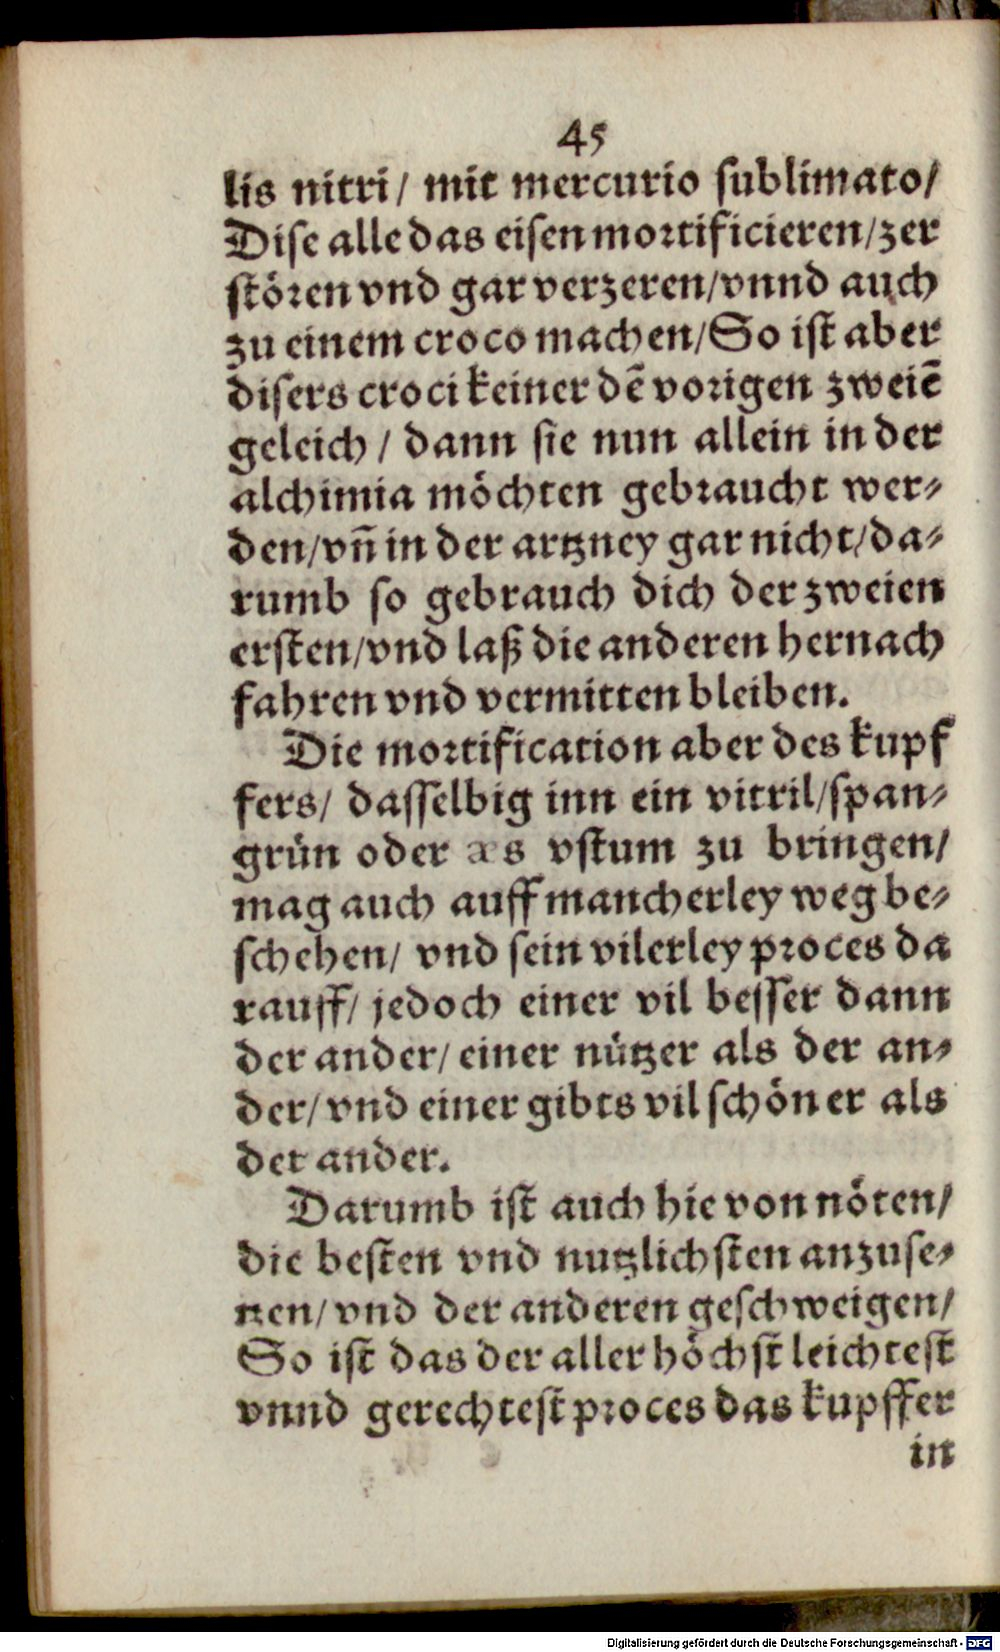 45
lis nitri/ mit mercurio sublimato/
Dise alle das eisen mortificieren/zer
stören vnd gar verzeren/vnnd auch
zu einem croco machen/So ist aber
disers croci keiner dē vorigen zweiē
geleich / dann sie nun allein in der
alchimia möchten gebraucht wer-
den/vn̄ in der artzney gar nicht/da-
rumb so gebrauch dich der zweien
ersten/vnd laß die anderen hernach
fahren vnd vermitten bleiben.
Die mortification aber des kupf
fers/ dasselbig inn ein vitril/span-
grün oder æs vstum zu bringen/
mag auch auff mancherley weg be-
schehen/ vnd sein vilerley proces da
rauff/ jedoch einer vil besser dann
der ander/ einer nützer als der an-
der/ vnd einer gibts vil schöner als
der ander.
Darumb ist auch hie von nöten/
die besten vnd nutzlichsten anzuse-
tzen/ vnd der anderen geschweigen/
So ist das der aller höchst leichtest
vnnd gerechtest proces das kupffer
in
Digitalisierung gefördert durch die Deutsche Forschungsgemeinschaft - DFG